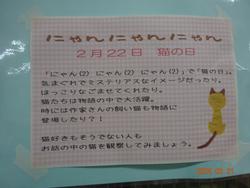 にゃんにゃんにゃん
2月22日　猫の日
「にゃん(2) にゃん(2) にゃん(2)」で「猫の日」。
気まぐれでミステリアスなイメージだったり、
ほっこりなごませてくれたり。
猫たちは物語の中で大活躍。
時には作家さんの飼い猫も物語に
登場したり？！
猫好きもそうでない人も
お話の中の猫を観察してみましょう。